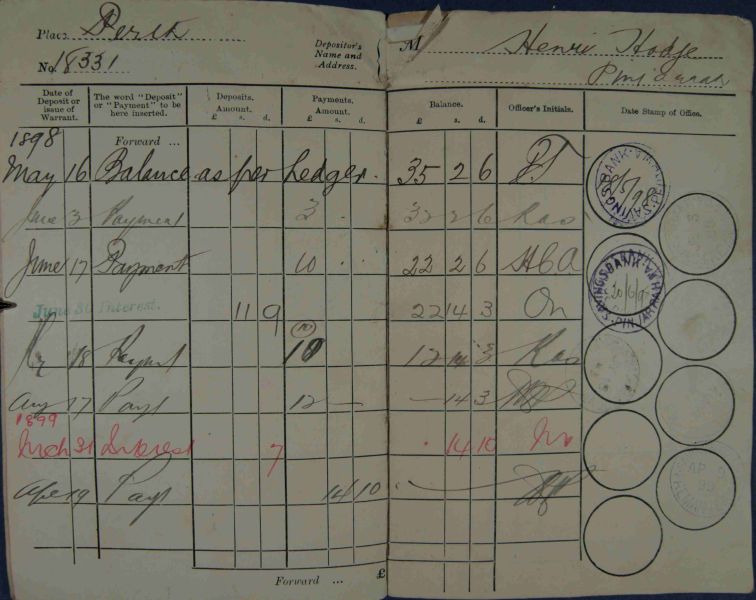 Place Perth
No. 18331
Depositor's Name and Address.
M Henri Hodge
Pinjarrah
Date of Deposit or issue of Warrant.
The word "Deposit" or "Payment" to be here inserted.
Deposits. Amount. £ s. d.
Payments. Amount. £ s. d.
Balance. £ s. d.
Officer's Initials.
Date Stamp of Office.
1898
Forward ...
May 16 Balance as per Ledger. 35 2 6
June 3 Payment 3 . 32 2 6
June 17 Payment 10 . 22 2 6 HCA
June 30 Interest. 11 9 22 14 3
(10)
18 Payment 10 12 14 3
Aug 17 Payt 12 — — 14 3
1899
Mch 31 Interest 7 . 14 10
Apl 19 Payt 14 10
Forward ... £
SAVINGS BANK PINJARRAH W.A.
20/6/98